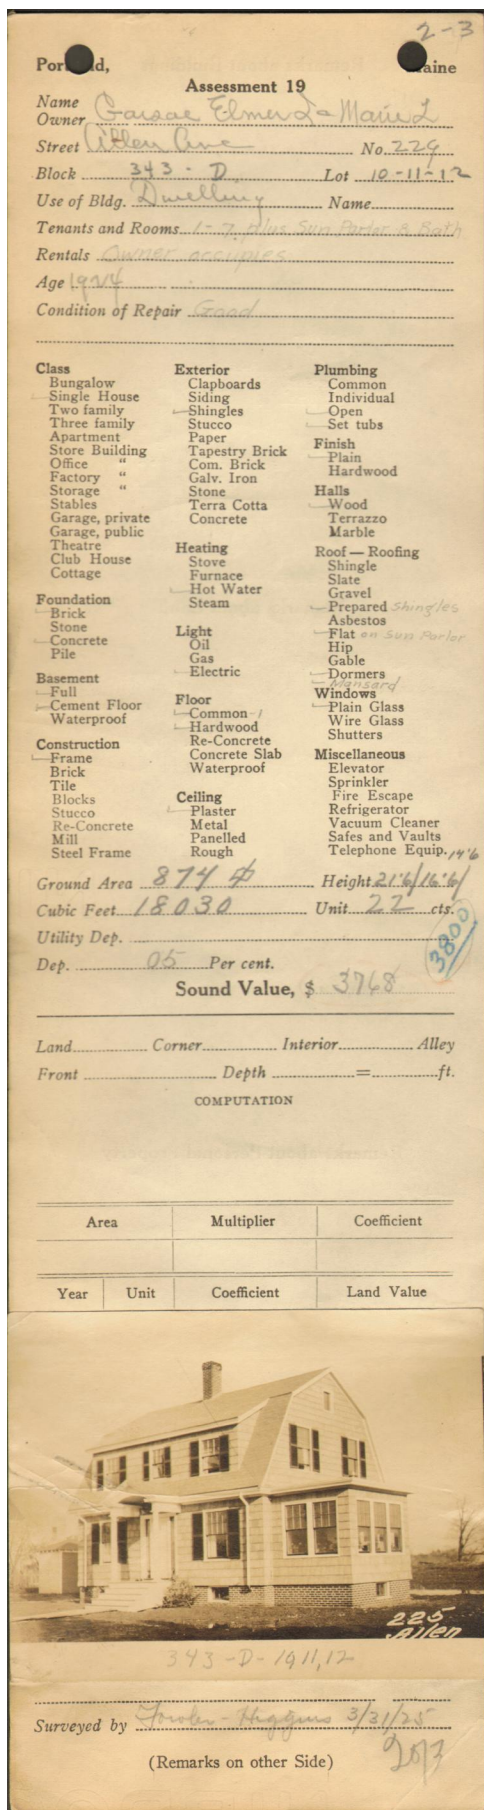 2-3
Portland, Maine
Assessment 19
Name
Owner Elmer L & Marie L
Street Allen Ave No. 229
Block 343 - D Lot 10-11-12
Use of Bldg. Dwelling Name
Tenants and Rooms 1-7 plus Sun Parlor & Bath
Rentals Owner occupies
Age 1924
Condition of Repair Good
Class
Bungalow
Single House
Two family
Three family
Apartment
Store Building
Office "
Factory "
Storage "
Stables
Garage, private
Garage, public
Theatre
Club House
Cottage
Foundation
Brick
Stone
Concrete
Pile
Basement
Full
Cement Floor
Waterproof
Construction
Frame
Brick
Tile
Blocks
Stucco
Re-Concrete
Mill
Steel Frame
Exterior
Clapboards
Siding
Shingles
Stucco
Paper
Tapestry Brick
Com. Brick
Galv. Iron
Stone
Terra Cotta
Concrete
Heating
Stove
Furnace
Hot Water
Steam
Light
Oil
Gas
Electric
Floor
Common - 1
Hardwood
Re-Concrete
Concrete Slab
Waterproof
Ceiling
Plaster
Metal
Panelled
Rough
Plumbing
Common
Individual
Open
Set tubs
Finish
Plain
Hardwood
Halls
Wood
Terrazzo
Marble
Roof — Roofing
Shingle
Slate
Gravel
Prepared Shingles
Asbestos
Flat on Sun Parlor
Hip
Gable
Dormers
Mansard
Windows
Plain Glass
Wire Glass
Shutters
Miscellaneous
Elevator
Sprinkler
Fire Escape
Refrigerator
Vacuum Cleaner
Safes and Vaults
Telephone Equip. 14'6
Ground Area 874 Height 21'6/16'6/
Cubic Feet 18030 Unit 22 cts.
Utility Dep.
3800
Dep. 05 Per cent.
Sound Value, $ 3768
Land Corner Interior Alley
Front Depth = ft.
COMPUTATION
Area Multiplier Coefficient
Year Unit Coefficient Land Value
225
Allen
343-D-1911,12
Surveyed by Fowler - Higgins 3/31/25
(Remarks on other Side)